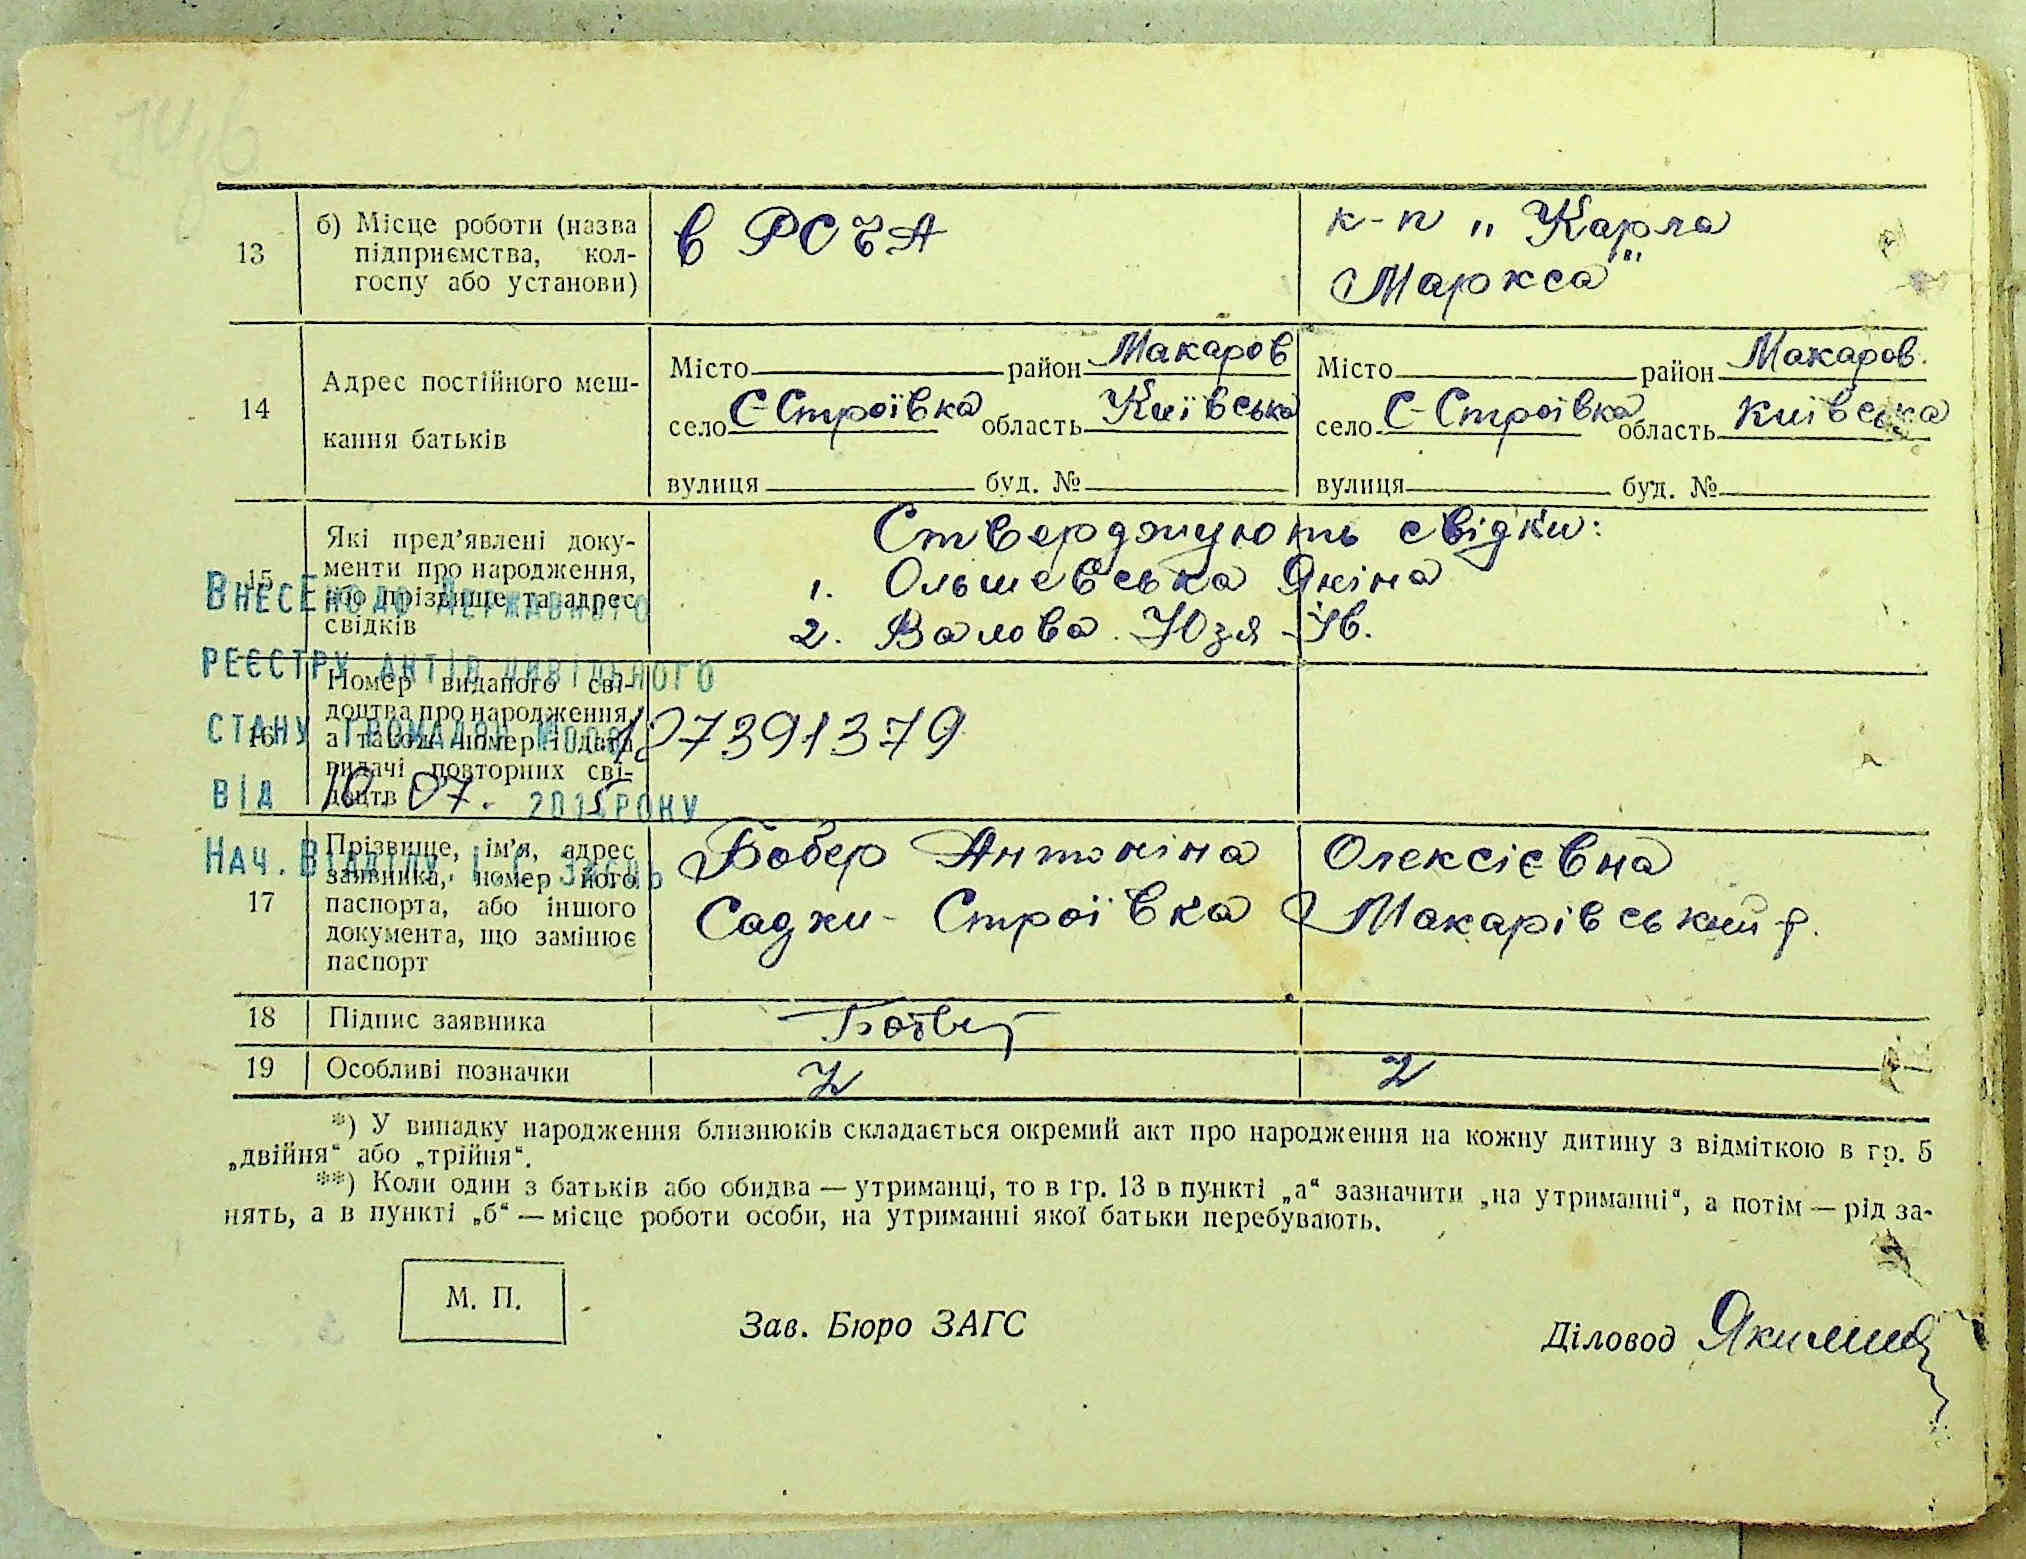 13
б) Місце роботи (назва
підприємства, кол-
госпу або установи)
в РСЧА
к-п „Карла
Маркса"
14
Адрес постійного меш-
кання батьків
Місто район Макаров
село С-Строївка область Київська
вулиця буд. №
Місто район Макаров.
село С-Строївка область Київська
вулиця буд. №
15
Які пред’явлені доку-
менти про народження,
або прізвище та адрес
свідків
Стверджують свідки:
1. Ольшевська Яніна
2. Валова Юзя Ів.
16
Номер виданого сві-
доцтва про народження,
а також номер і дата
видачі повторних сві-
доцтв
127391379
Внесено до Державного
реєстру актів цивільного
стану громадян
від 10.07. рону
Нач. Відділу
17
Прізвище, ім’я, адрес
заявника, номер його
паспорта, або іншого
документа, що замінює
паспорт
Бобер Антоніна Олексієвна
Садки-Строївка Макарівський р.
18
Підпис заявника
19
Особливі позначки
*) У випадку народження близнюків складається окремий акт про народження на кожну дитину з відміткою в гр. 5
„двійня“ або „трійня“.
**) Коли один з батьків або обидва — утриманці, то в гр. 13 в пункті „а“ зазначити „на утриманні“, а потім — рід за-
нять, а в пункті „б“ — місце роботи особи, на утриманні якої батьки перебувають.
М. П.
Зав. Бюро ЗАГС
Діловод